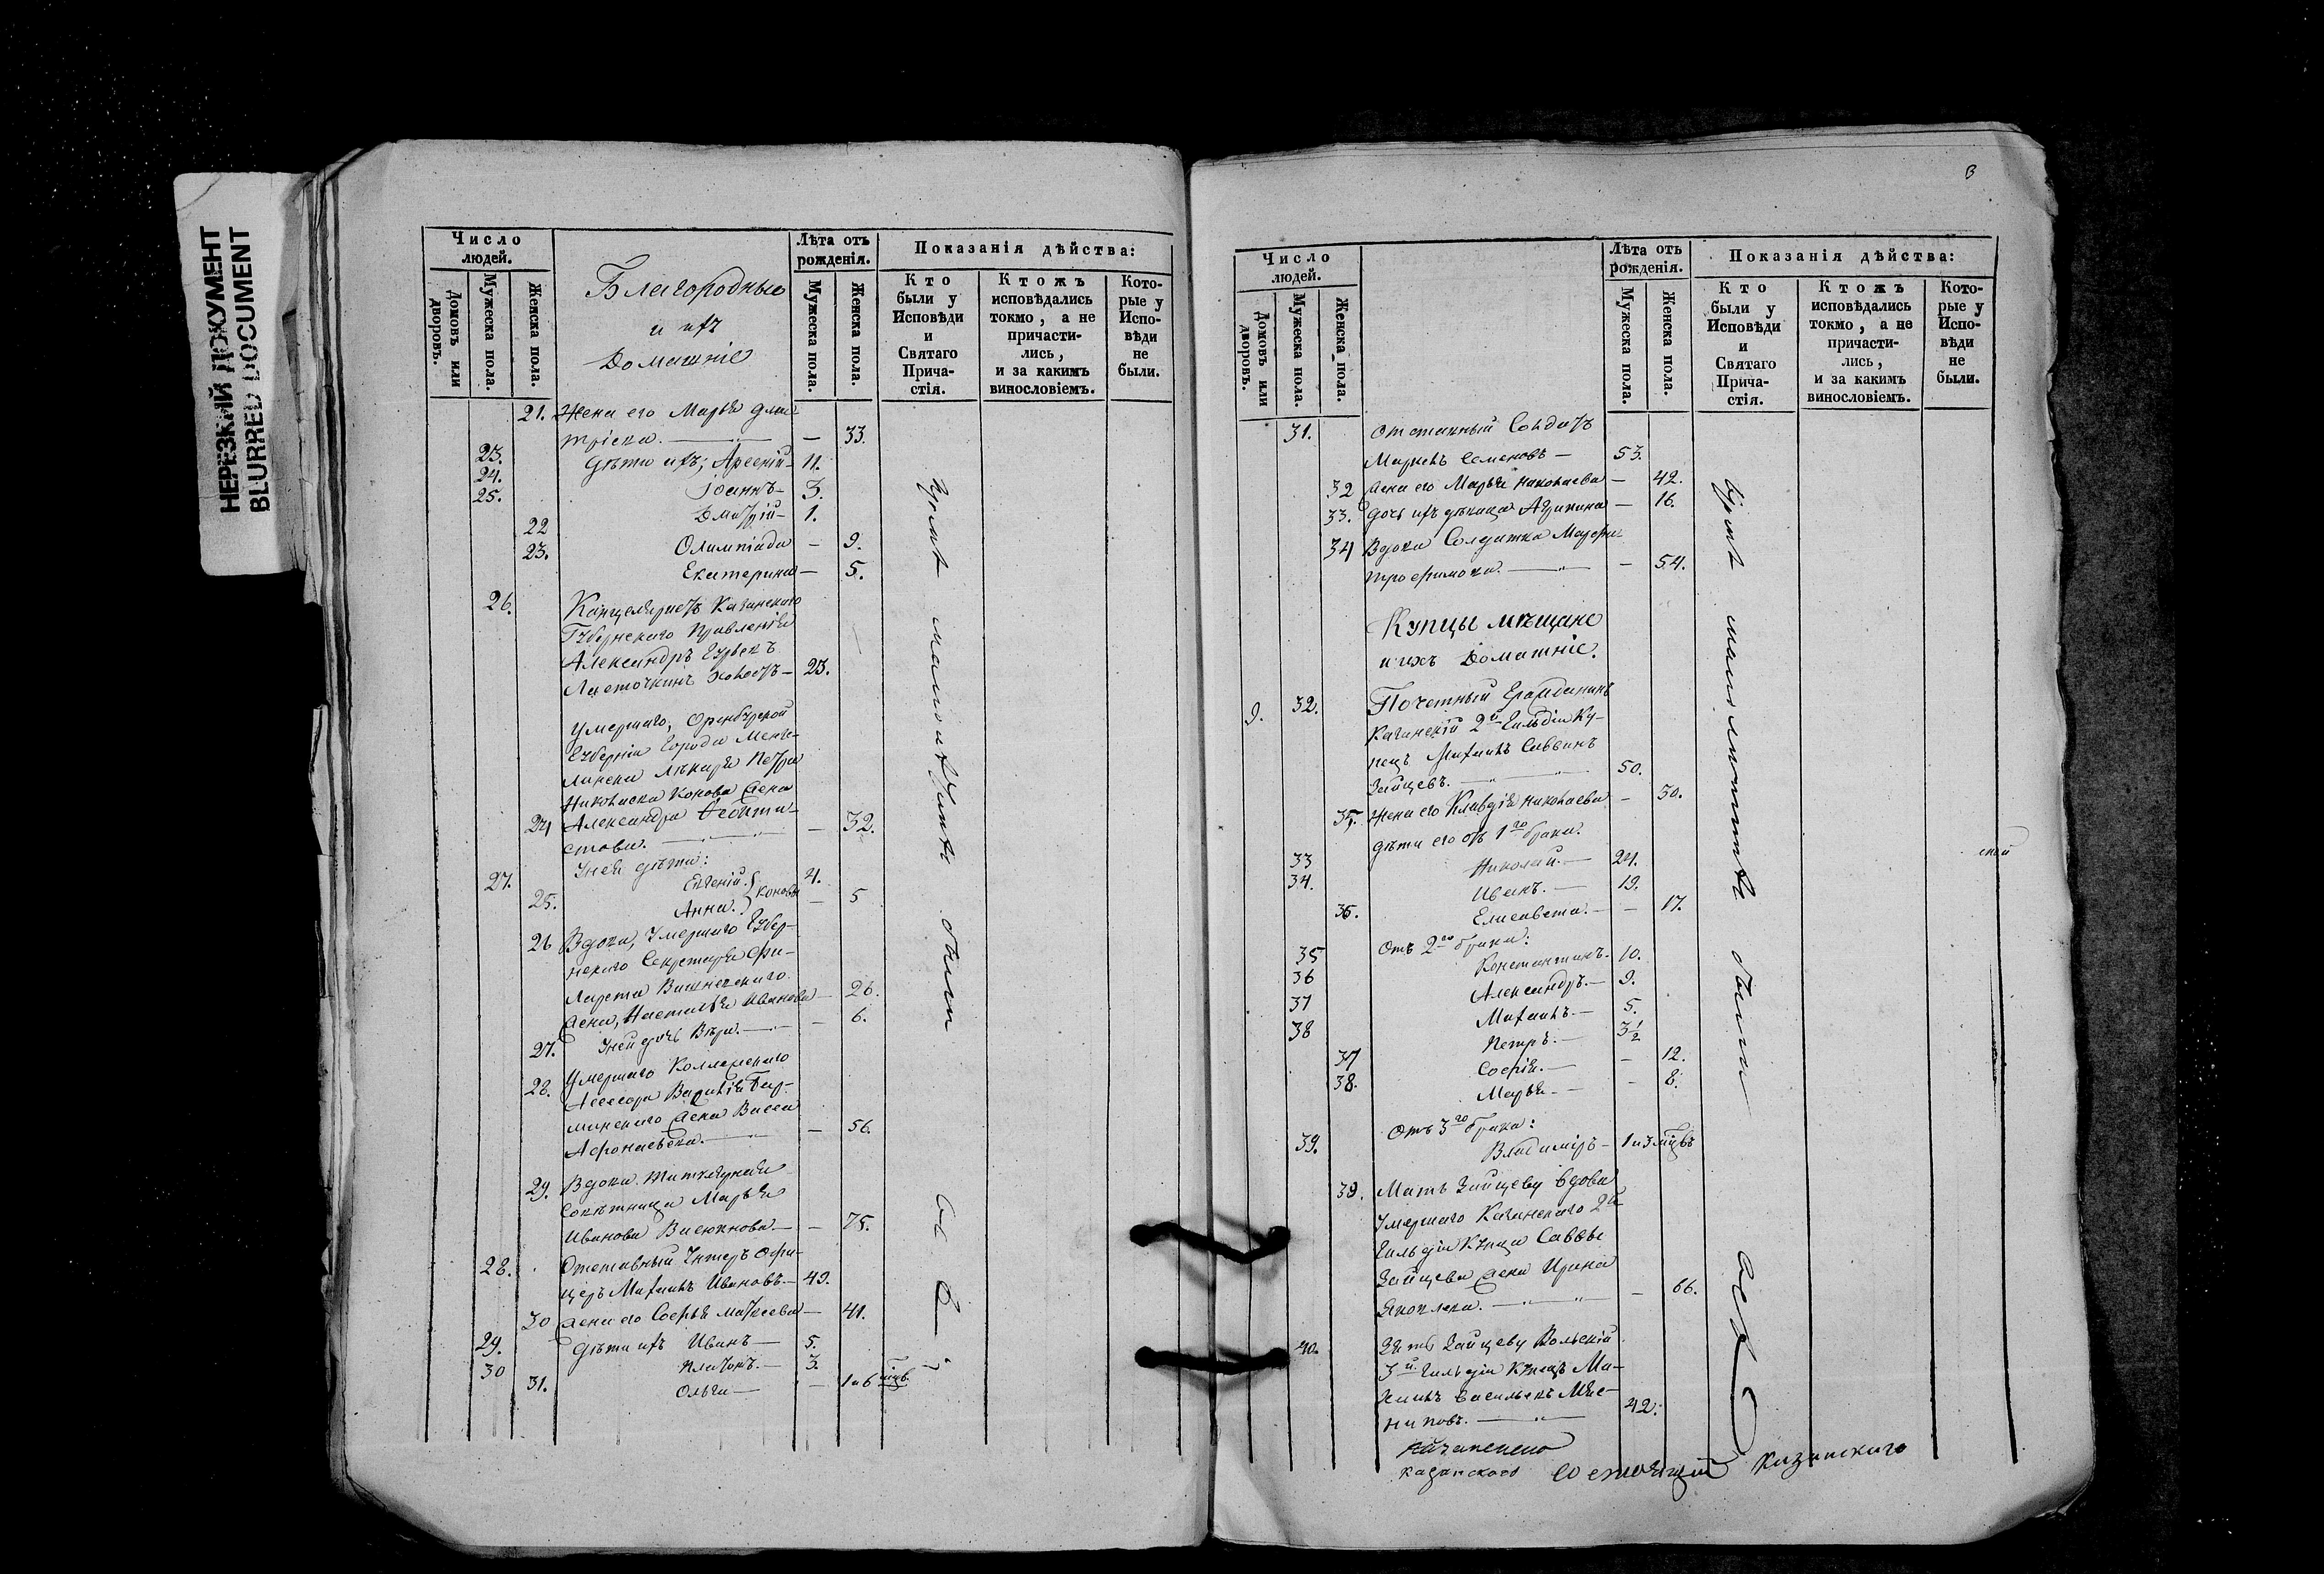 НЕРЕЗКИЙ ДОКУМЕНТ
BLURRED DOCUMENT
Число людей.
Домовъ или дворовъ.
Мужеска пола.
Женска пола.
Благородные
и ихъ
Домашніе
Лѣта отъ рожденія.
Мужеска пола.
Женска пола.
Показанія дѣйства:
Кто были у Исповѣди и Святаго Прича-стія.
Ктожъ исповѣдались токмо, а не причасти-лись, и за какимъ винословіемъ.
Кото-рые у Испо-вѣди не были.
21. Жена его Марья Дми-
тріева. — 33.
23. Дѣти ихъ; Арсеній — 11.
24. Іоаннъ — 3.
25. Дмитрій — 1.
22 Олимпіада — 9.
23. Екатерина — 5.
26. Канцеляристъ Казанского
Губернского Правленія
Александръ Гурьевъ
Ласточкинъ холостъ — 23.
Умершаго, Оренбургской
Губерніи Города Мензе-
линска Лѣкаря Петра
Николаева Конова жена
24 Александра Севасти-
стова. — 32.
У нея дѣти:
27. Евгеній. 4.
Коновы
25. Анна. — 5
26 Вдова, Умершаго Губер-
нского Секретаря Фи-
ларета Вишневского
жена, Настасья Иванова — 26.
27. У ней дочь Вѣра. — 6.
28. Умершаго Коллежского
Ассесора Василія Бир-
минского жена Васса
Афонасьева. — 56.
29. Вдова Титулярная
Совѣтница Марья
Иванова Васюкнова. — 75.
28. Отставный Унтеръ Офи-
церъ Михаилъ Ивановъ. — 49.
30 жена его Софья Матвеева — 41.
29. Дѣти ихъ Иванъ — 5.
30 Платонъ. — 3.
31. Ольга — 1 и 6 мцв.
были
всѣ
3
Число людей.
Домовъ или дворовъ.
Мужеска пола.
Женска пола.
Лѣта отъ рожденія.
Мужеска пола.
Женска пола.
Показанія дѣйства:
Кто были у Исповѣди и Святаго Прича-стія.
Ктожъ исповѣдались токмо, а не причасти-лись, и за какимъ винословіемъ.
Кото-рые у Испо-вѣди не были.
31. Отставный Солдатъ
Маркелъ Семеновъ — 53.
32 жена его Марья Николаева — 42.
33. дочь ихъ дѣвица Агрипина — 16.
34 Вдова Солдатка Марфа
Трофимова. — 54.
Купцы мѣщане
и ихъ Домашніе.
9. 32. Почетный Гражданинъ
Казанскій 2й Гильдіи Ку-
пецъ Михаилъ Саввинъ
Зайцевъ. — 50.
35. Жена его Клавдія Николаева — 30.
дѣти его отъ 1го брака.
33 Николай. — 24.
34. Иванъ. — 19.
36. Елисавета. — 17.
Отъ 2го брака:
35 Константинъ. 10.
36 Александръ. — 9.
37 Михаилъ. — 5.
38 Петръ. — 3½
37 Софія. — 12.
38. Марья. — 8.
Отъ 3го брака:
39. Владиміръ — 1 и 3 мцвъ
39. Мать Зайцеву вдова
Умершаго Казанского 2й
Гильдіи Купца Саввы
Зайцева жена Ирина
Яковлева. — 66.
40. Зять Зайцеву Вольскій
3й Гильдіи Купецъ Ми-
хаилъ Васильевъ Мяс-
никовъ. — 42.
были
всѣ
Казанского состоящій Казанскаго